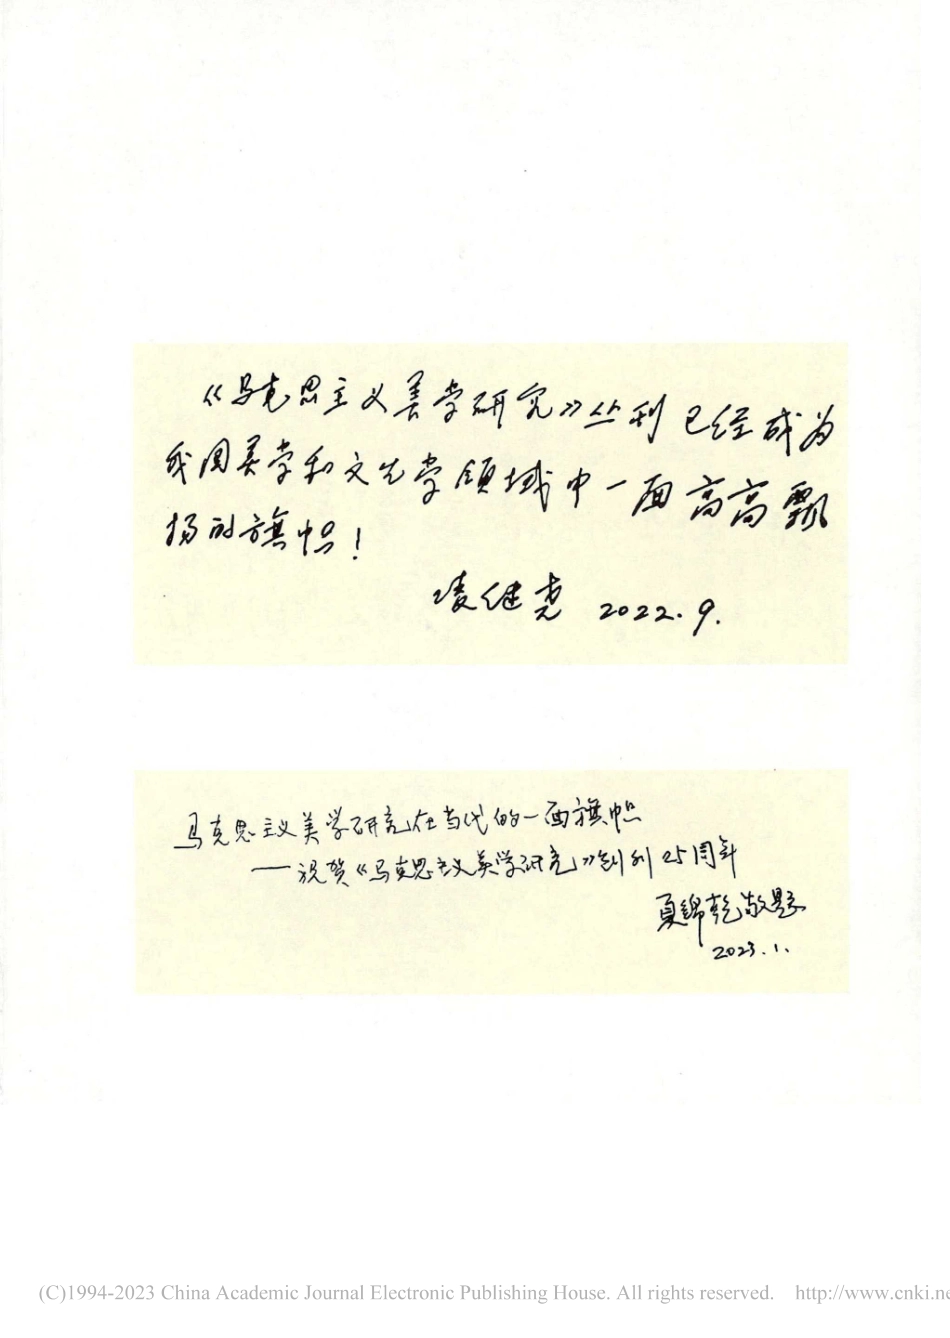 《马克思主义美学研究》丛刊已经成为
我国美学和文艺学领域中一面高高飘
扬的旗帜！
凌继尧 2022.9.
马克思主义美学研究在当代的一面旗帜
——祝贺《马克思主义美学研究》创刊25周年
夏锦乾敬题
2023.1.
(C)1994-2023 China Academic Journal Electronic Publishing House. All rights reserved. http://www.cnki.ne